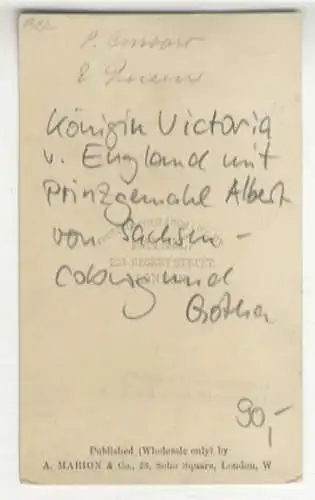 Königin Victoria
v. England mit
Prinzgemahl Albert
von Sachsen-
Coburg und
Gotha
90,-
Published (Wholesale only) by
A. MARION & Co., 23, Soho Square, London, W